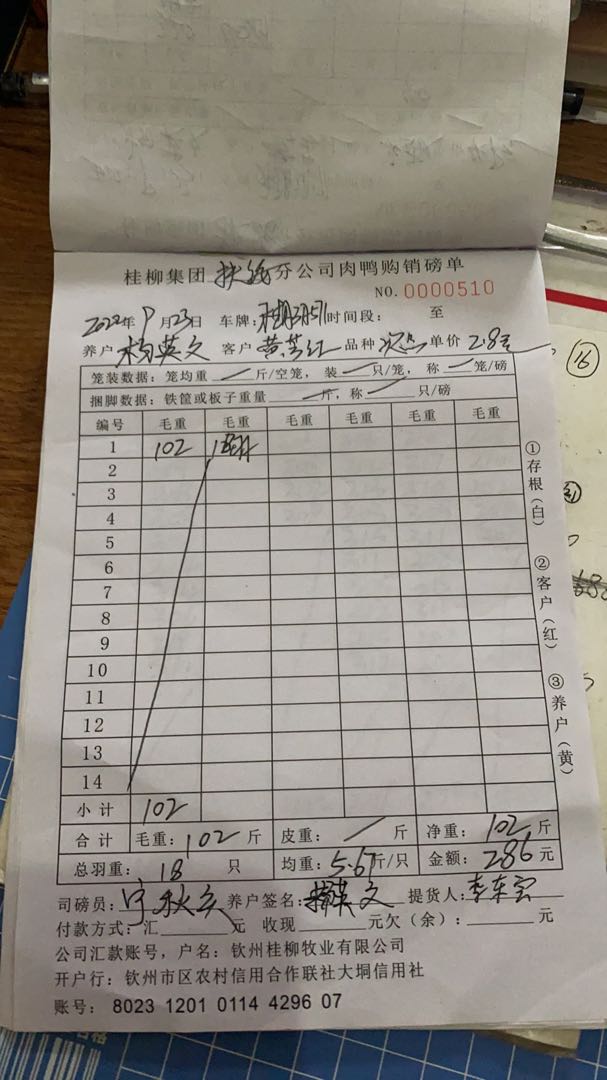 桂柳集团 扶绥 分公司肉鸭购销磅单
NO. 0000510
2022年 9月23日 车牌: 时间段: 至
养户 杨英文 客户 黄芳红 品种 单价 2.8元
笼装数据: 笼均重 斤/空笼, 装 只/笼, 称 笼/磅
捆脚数据: 铁筐或板子重量 斤, 称 只/磅
编号 毛重 毛重 毛重 毛重 毛重 毛重
1 102 18只
2
3
4
5
6
7
8
9
10
11
12
13
14
小计 102
合计 毛重: 102 斤 皮重: 斤 净重: 102 斤
总羽重: 18 只 均重: 5.67斤/只 金额: 286 元
司磅员: 养户签名: 杨英文 提货人:
付款方式: 汇 元 收现 元欠(余): 元
公司汇款账号, 户名: 钦州桂柳牧业有限公司
开户行: 钦州市区农村信用合作联社大垌信用社
账号: 8023 1201 0114 4296 07
①存根(白)
②客户(红)
③养户(黄)
16